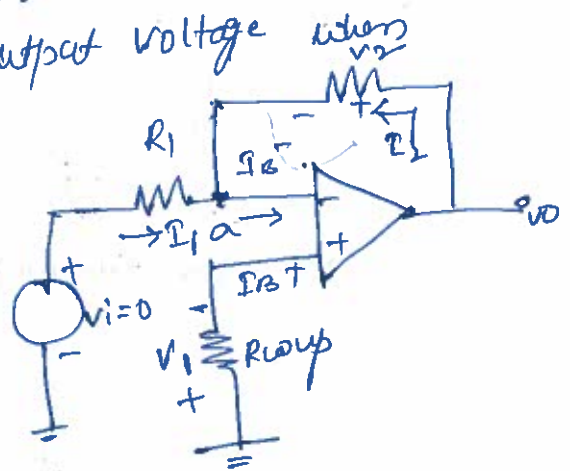 utput voltage when
V2
+ -
R1
IB-
I2
→ I1 a →
-
+
vo
IB+
+
vi=0
-
-
V1
Rcomp
+